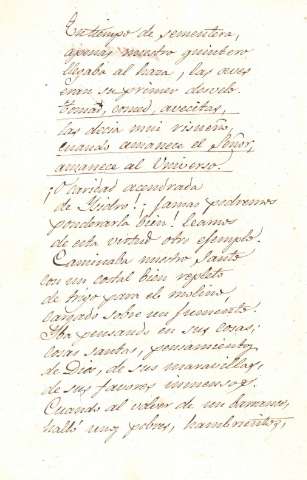 En tiempo de sementera,
apenas nuestro quintero
llegaba al haza, las aves
eran su primer desvelo.
Tomad, comed, avecitas,
las decía muy risueño,
cuando amanece el Señor,
amanece al Universo.
¡Claridad acendrada
de Isidro!; jamas podremos
ponderarla bien! leamos
de esta virtud otro ejemplo.
Caminaba nuestro Santo
con un costal bien repleto
de trigo para el molino,
cargado sobre un jumento.
Iba pensando en sus cosas;
cosas santas, pensamientos
de Dios, de sus maravillas,
de sus favores inmensos.
Cuando al volver de un barranco,
halló unos pobres, hambrientos,